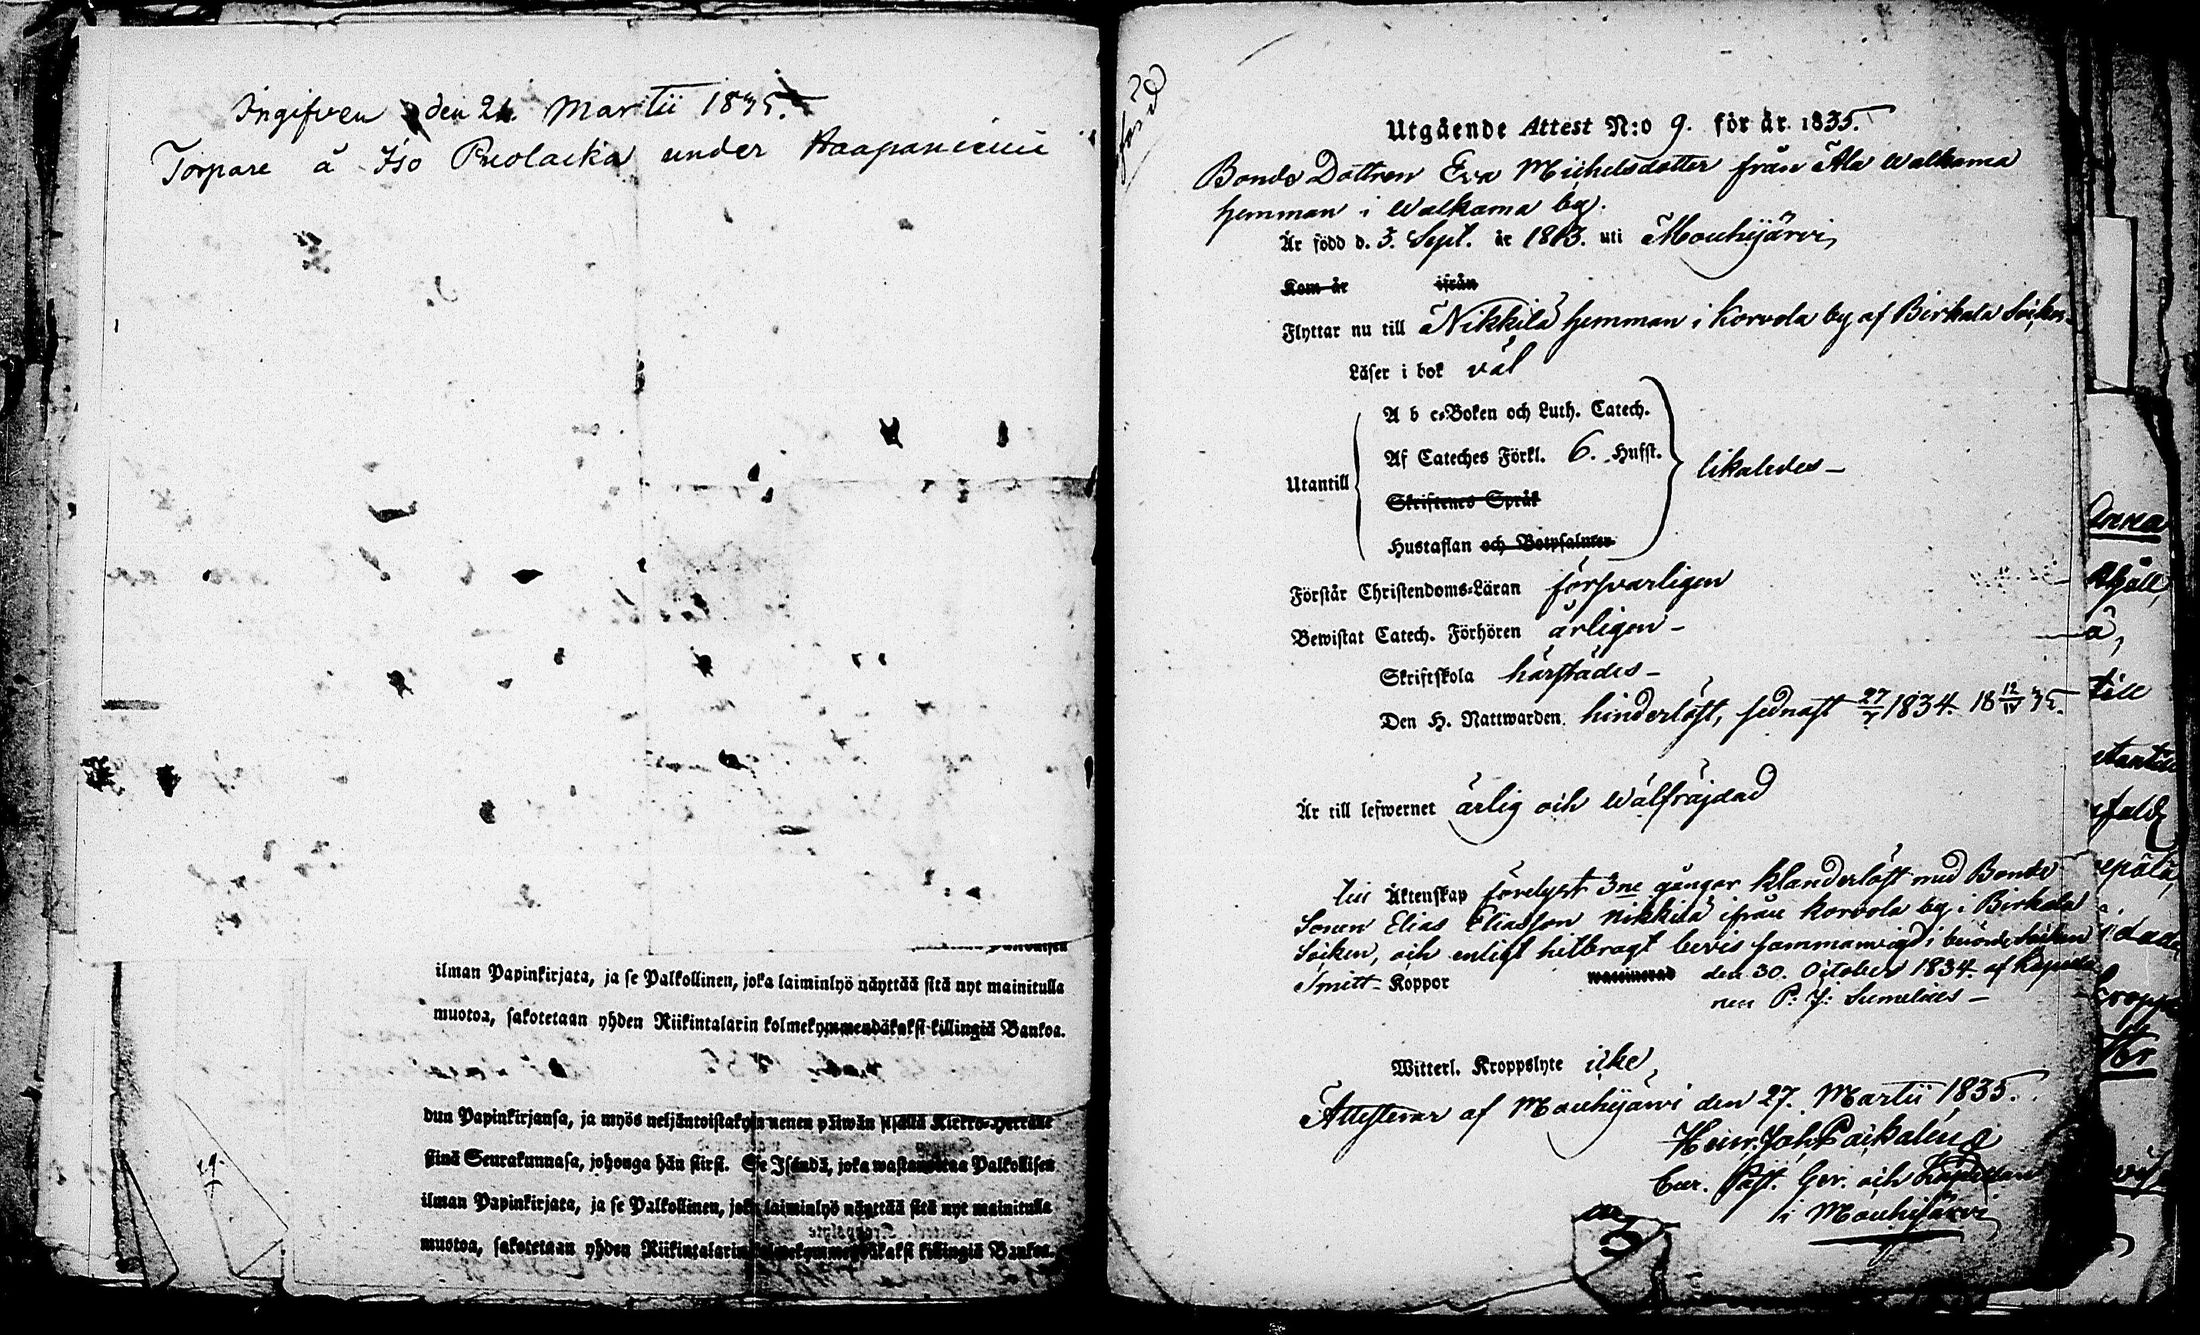 Ingifven den 21. Martii 1835.
Torpare å Iso Puolacka under Haapaniemi
ilman Papinkirjata, ja se Palkollinen, joka laiminlyö näyttää sitä nyt mainitulla
muotoa, sakotetaan yhden Riikintalarin kolmekymmendäkaksi killingiä Bankoa.
dun Papinkirjansa, ja myös neljäntoistakymmenen päiwän sisällä Kirkko-Herralle
siinä Seurakunnasa, johonga hän siirsi. Se Isändä, joka wastanottaa Palkollisen
ilman Papinkirjata, ja se Palkollinen, joka laiminlyö näyttää sitä nyt mainitulla
muotoa, sakotetaan yhden Riikintalarin kolmekymmendäkaksi killingiä Bankoa.
Utgående Attest N:o 9. för år 1835.
Bonde Dottren Eva Michelsdotter från Ala Walkama
hemman i Walkama by.
Är född d. 3. Sept. år 1813. uti Mouhijärvi
Kom år ifrån
Flyttar nu till Nikkilä hemman i Korvola by af Birkala Socken
Läser i bok väl
A b c-Boken och Luth. Catech.
Af Cateches Förkl. 6. Hufst.
Utantill likaledes
Skriftenes Språk
Hustaflan och Botpsalmer
Förstår Christendoms-Läran försvarligen
Bewistat Catech. Förhören årligen
Skriftskola härstädes
Den H. Nattwarden hinderlöst, sednast 27/7 1834. 18 12/IV 35.
Är till lefwernet ärlig och wälfräjdad
till Äktenskap förelyst 3ne gångor klanderlöst med Bonde
Sonen Elias Eliasson Nikkilä ifrån Korvola by i Birkala
Socken, och enligt hitbragt bevis sammanvigd i berörde Socken
Smitt-Koppor waccinerad den 30. October 1834 af Capella
nen P. J. Sumelius
Witterl. Kroppslyte icke
Attesterar af Mouhijärvi den 27. Martii 1835.
Henr. Joh.
Cur. Past. Ger. och Kapellan
i Mouhijärvi
3